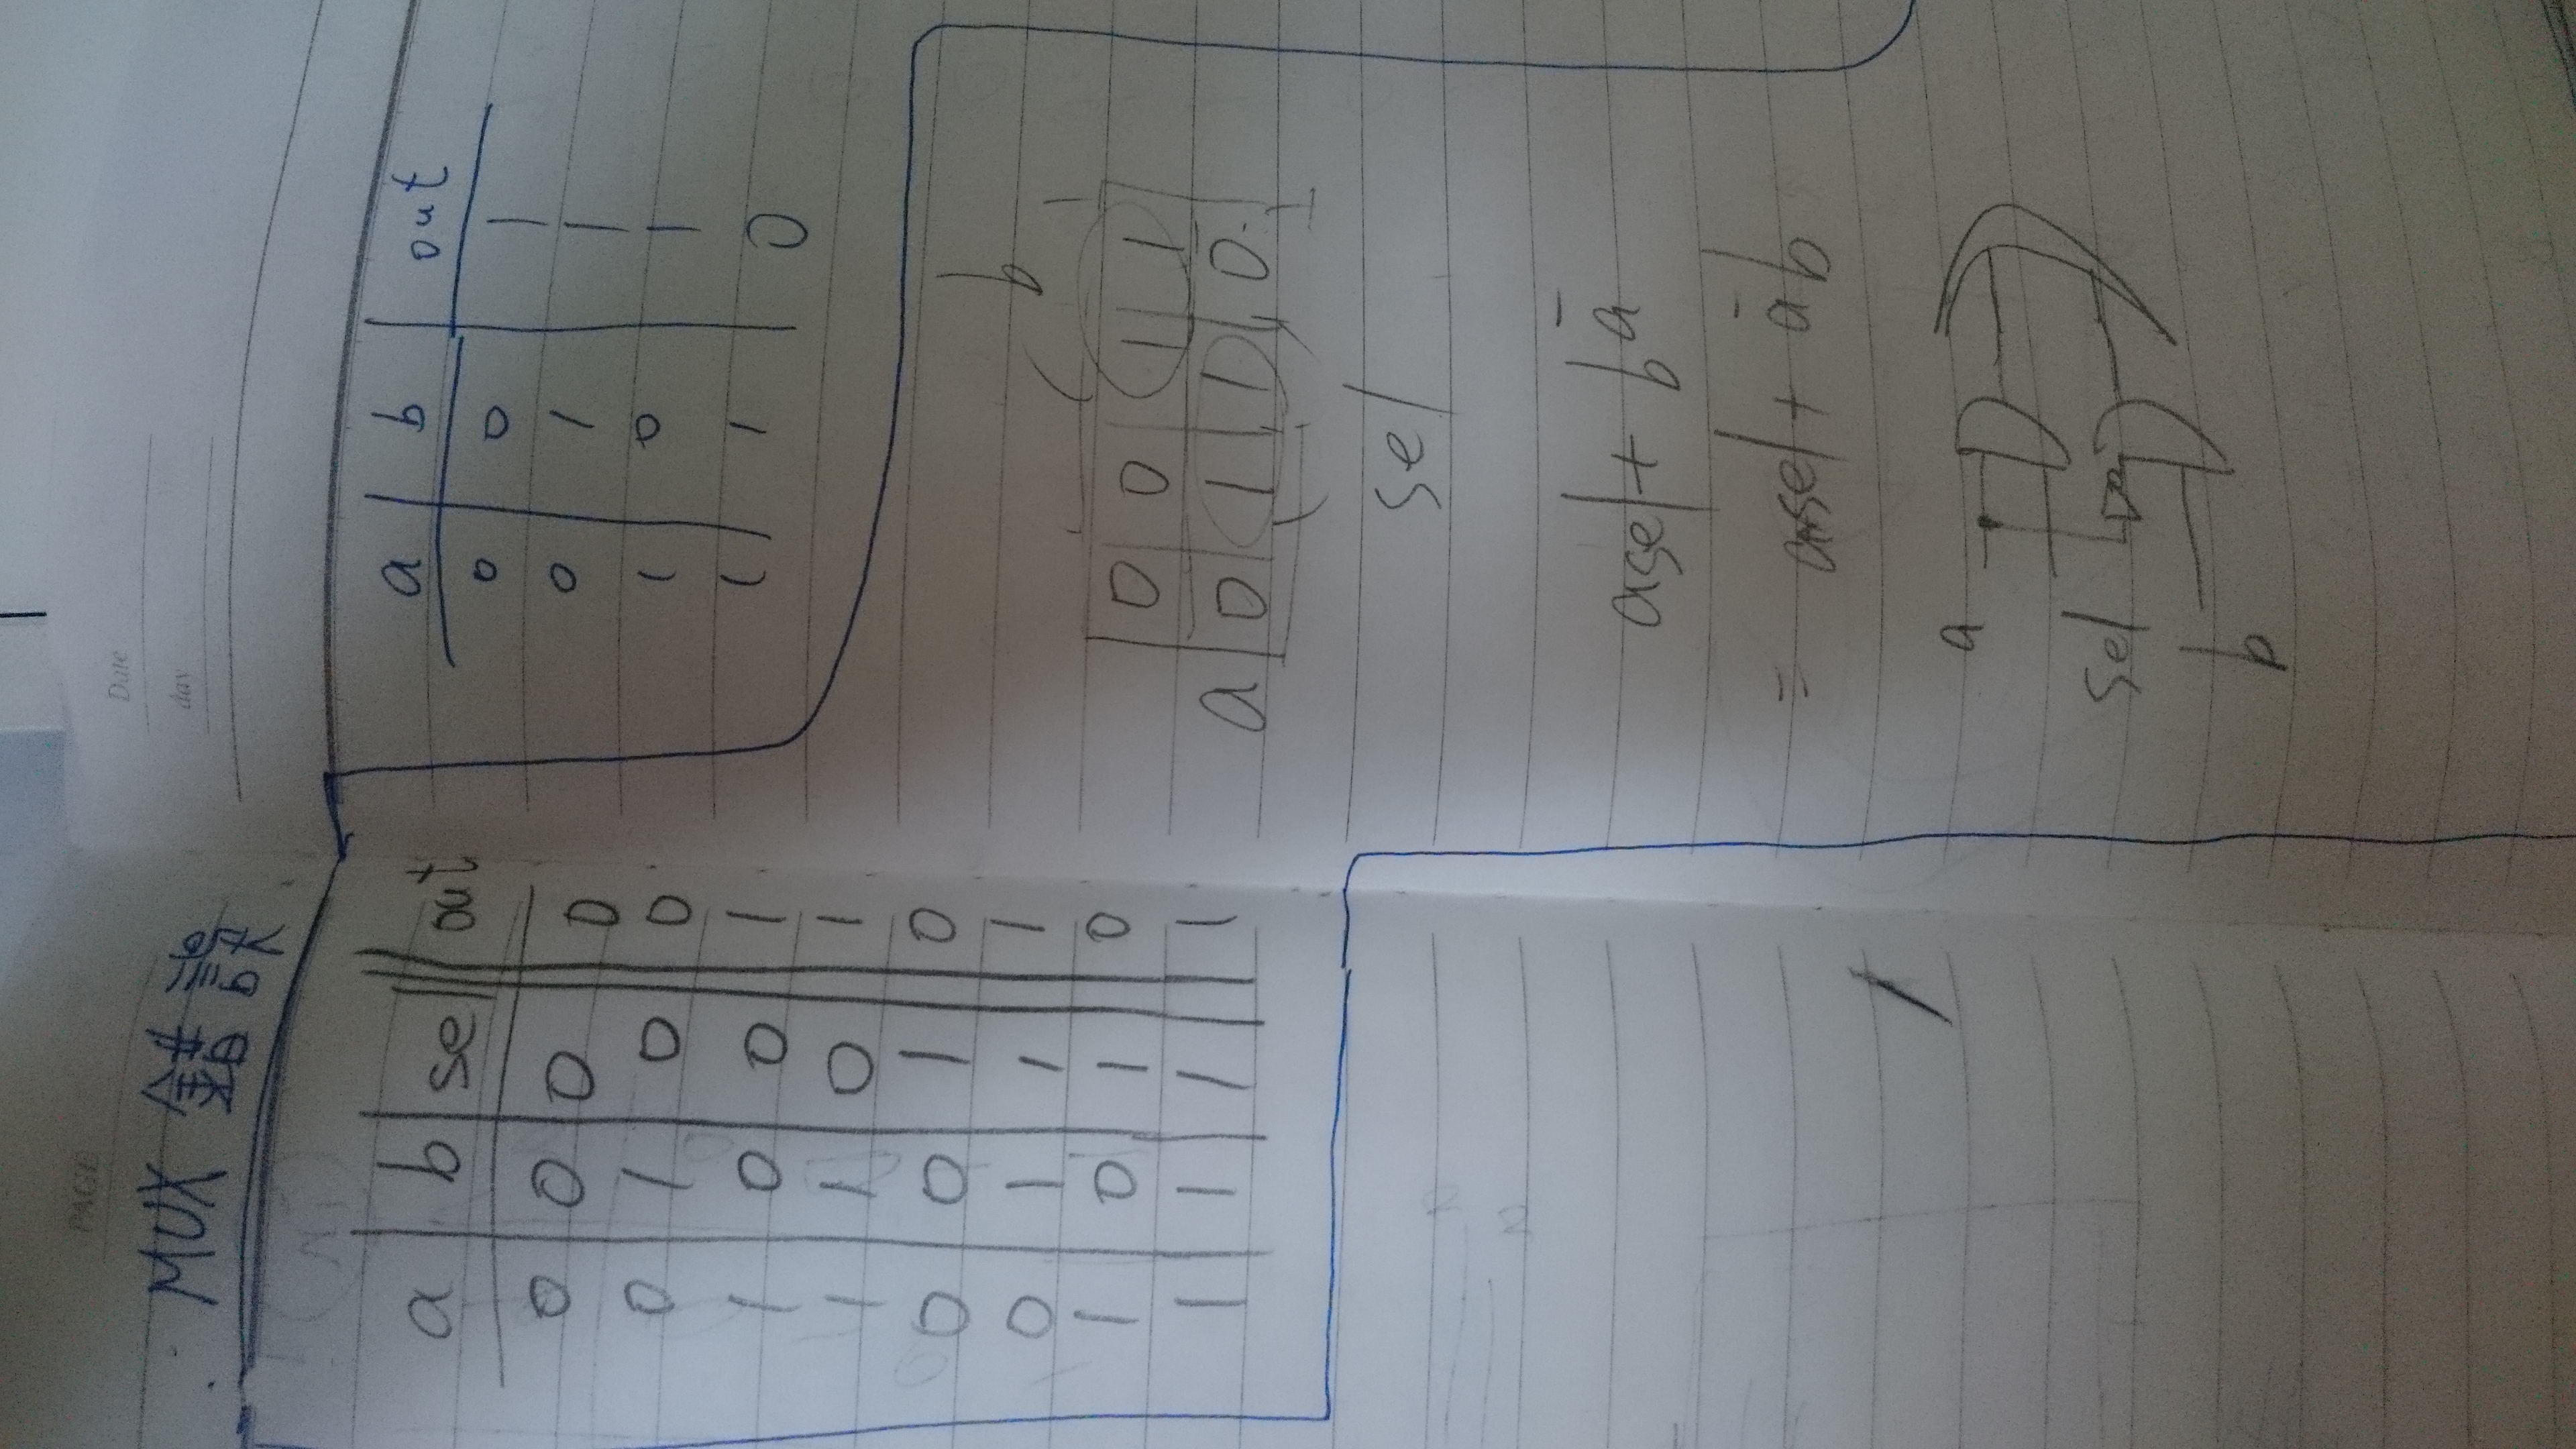 PAGE
MUX 錯誤
a b sel out
0 0 0 0
0 1 0 0
1 0 0 1
1 1 0 1
0 0 1 0
0 1 1 1
1 0 1 0
1 1 1 1
Date
day
a b out
0 0 1
0 1 1
1 0 1
1 1 0
b
0 0 1 1
a 0 1 1 0
sel
asel + bā
= asel + āb
a
sel
b